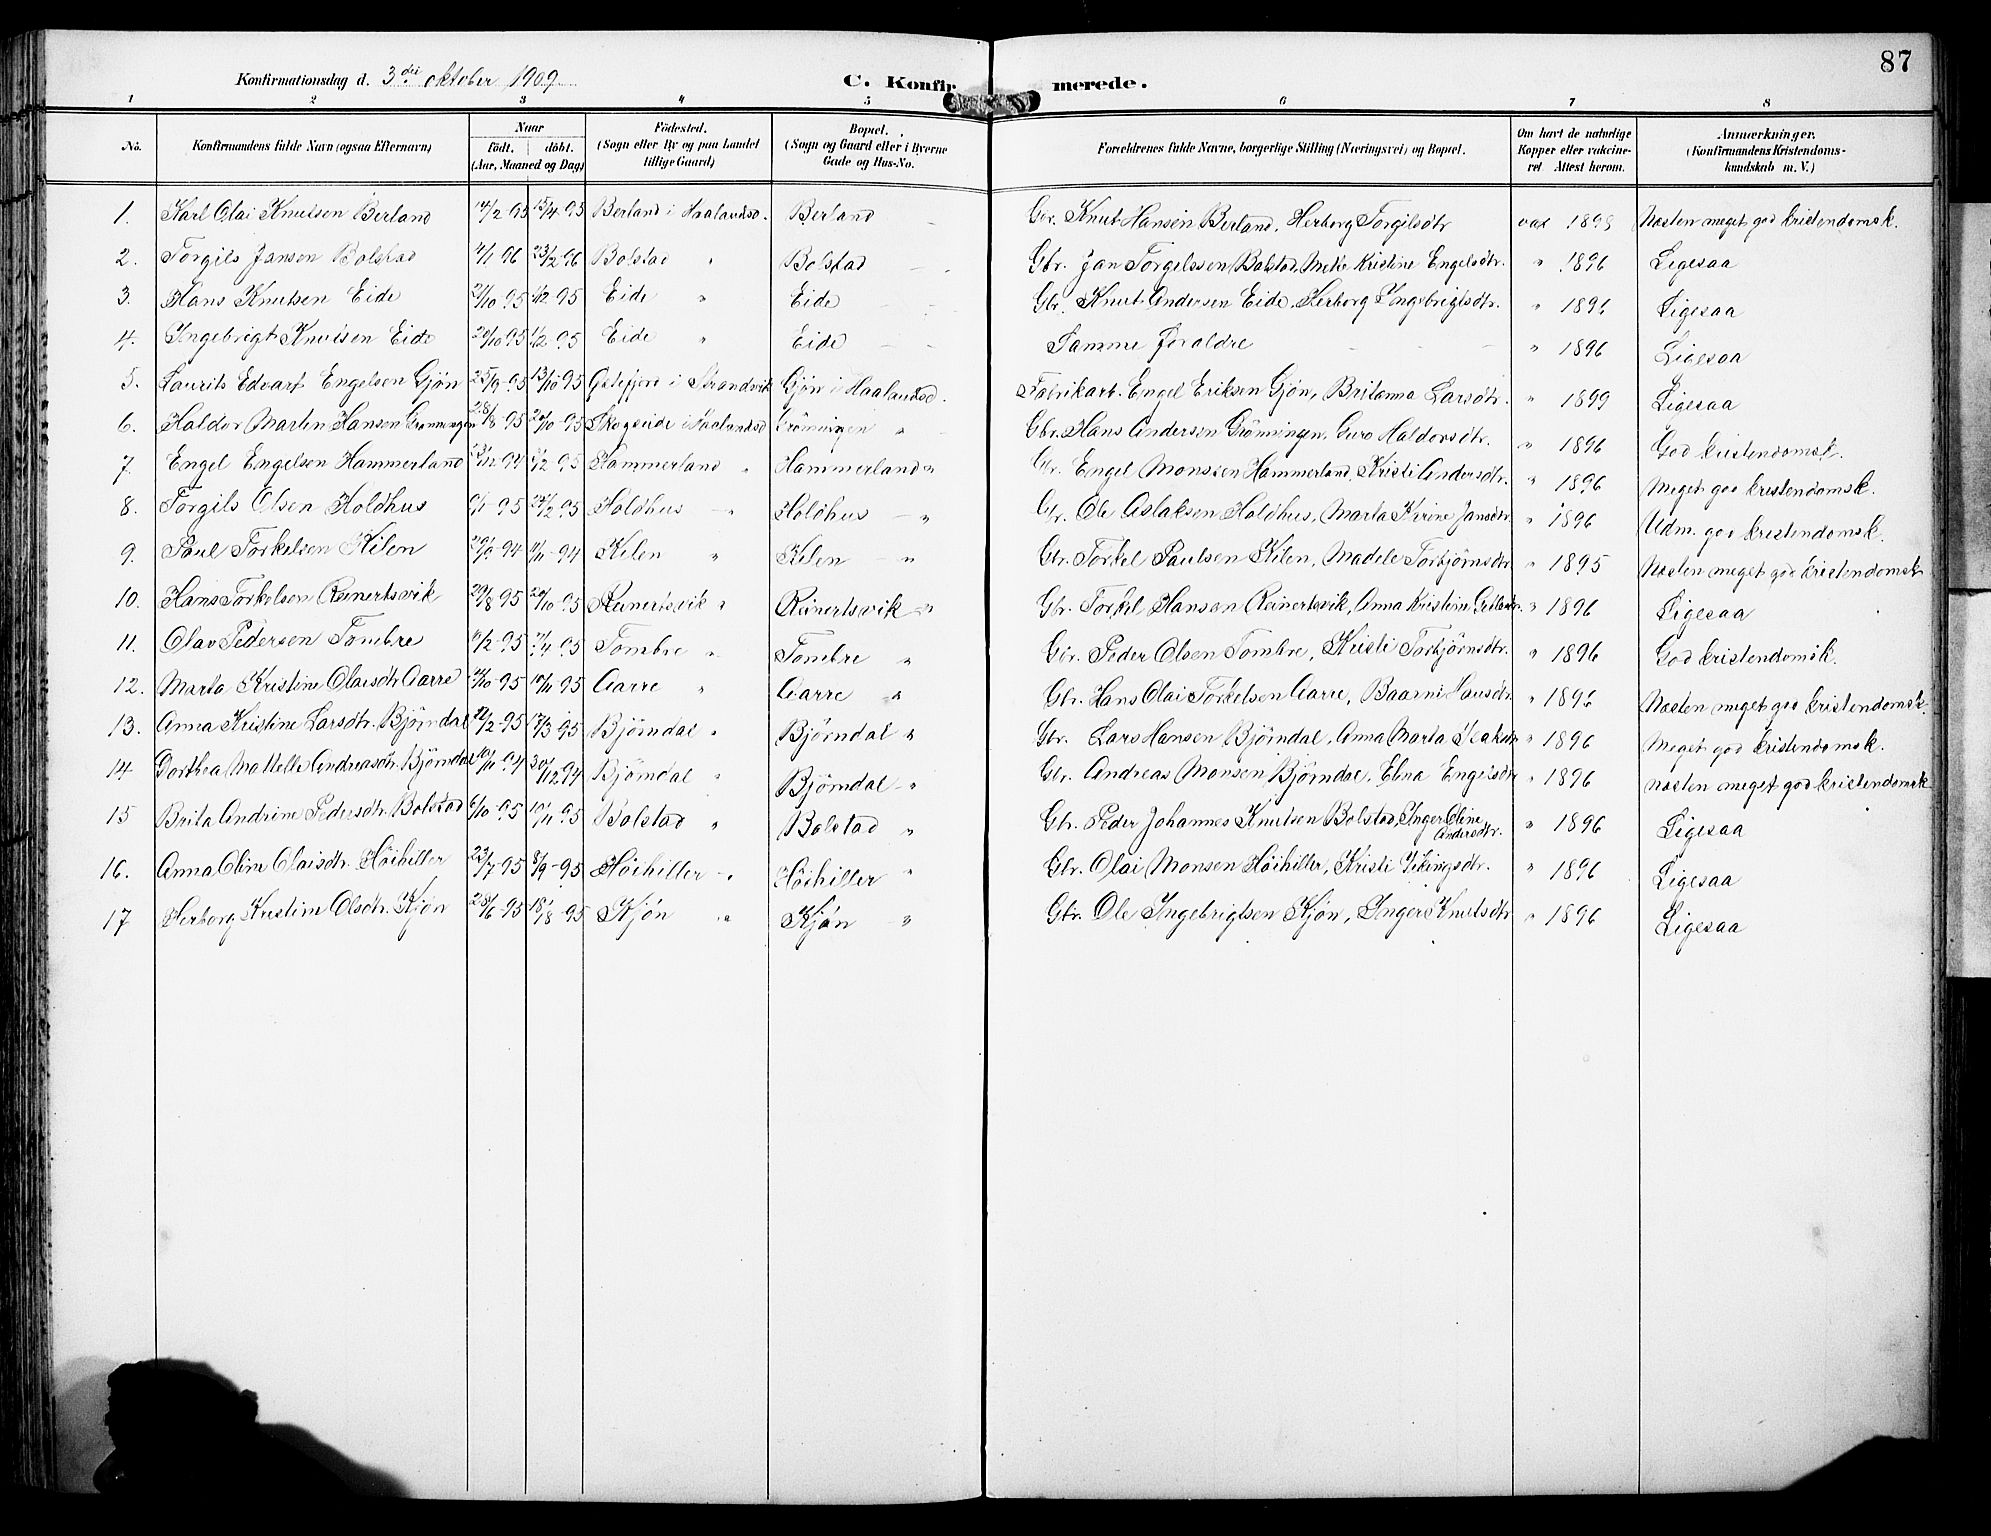 87
Konfirmationsdag d. 3die oktober 1909
C. Konfirmerede.
1 2 3 4 5 6 7 8
No. Konfirmandens fulde Navn (ogsaa Efternavn) Naar født. døbt. (Aar, Maaned og Dag) Fødested. (Sogn eller By og paa Landet tillige Gaard) Bopæl. (Sogn og Gaard eller i Byerne Gade og Hus-No. Forældrenes fulde Navne, borgerlige Stilling (Næringsvei) og Bopæl. Om havt de naturlige Kopper eller vakcineret Attest herom. Anmærkninger. (Konfirmandens Kristendomskundskab m. V.)
1. Karl Olai Knutsen Berland 14/2-95 15/4-95 Berland i Haalandsd. Berland Gbr. Knut Hansen Berland, Herborg Torgilsdtr vax Næsten meget god kristendomsk.
2. Torgils Jansen Bolstad 4/1 96 23/2-96 Bolstad " Bolstad Gbr. Jan Torgelssen Bolstad, Kristine Engelsdtr. " 1896 Ligesaa
3. Hans Knutsen Eide 1/12-95 Eide " Eide Gbr. Knut Andersen Eide, Herborg Ingebrigtsdtr. " 1896 Ligesaa
4. Ingebrigt Knutsen Eide 1/12-95 Eide " Eide Samme forældre " 1896 Ligesaa
5. Laurits Edvart Engelsen Gjøn 25/9-95 13/10-95 i Strandvik Gjøn i Haalandsd. Fabrikarb. Engel Eriksen Gjøn, Britanna Larsdtr. " 1899 Ligesaa
6. Haldor Martin Hansen Grønningen 28/8-95 20/10-95 Skogseide i Haalandsd Grønningen " Gbr. Hans Andersen Grønningen, Guro Haldorsdtr. " 1896 God kristendomsk.
7. Engel Engelsen Hammerland Hammerland " Hammerland " Gbr. Engel Monssen Hammerland, Kristi Andersdtr. " 1896 Meget god kristendomsk.
8. Torgils Olsen Holdhus 24/2-95 Holdhus " Holdhus " Gbr. Ole Aslaksen Holdhus, Marta Karine Jansdtr " 1896 Udm. god kristendomsk.
9. Paul Torkelsen Kilen Kilen " Kilen " Gbr. Torkel Paulsen Kilen, Madele Torbjørnsdtr " 1895 Næsten meget god kristendomsk
10. Hans Torkelsen Reinertsvik 29/8 95 20/10-95 Reinertsvik " Reinertsvik " Gbr. Torkel Hansen Reinertsvik, Anna Kristine " 1896 Ligesaa
11. Olav Pedersen Tombre Tombre " Tombre " Gbr. Peder Olsen Tombre, Kristi Torbjørnsdtr. " 1896 God kristendomsk.
12. Marta Kristine Olaisdtr Aarre 10/11 95 Aarre " Aarre " Gbr. Hans Olai Torkelsen Aarre, Baarni Hansdtr. " 1896 Næsten meget god kristendomsk.
13. Anna Kristine Larsdtr. Bjørndal 22/2-95 17/3-95 Bjørndal " Bjørndal " Gbr. Lars Hansen Bjørndal, Anna Marta Isaksdtr " 1896 Meget god kristendomsk.
14 Dorthea Mattelle Andreasdtr. Bjørndal 10/11 94 30/12 94 Bjørndal " Bjørndal " Gbr. Andreas Monsen Bjørndal, Elna Engelsdtr " 1896 Næsten meget god kristendomsk
15 Brita Andrine Pedersdtr. Bolstad 6/10-95 10/11-95 Bolstad " Bolstad " Gbr. Peder Johannes Knutsen Bolstad, Inger Oline Andersdtr. " 1896 Ligesaa
16. Anna Oline Olaisdtr. Høihiller 23/7-95 8/9-95 Høihiller " Høihiller " Gbr. Olai Monsen Høihiller, Kristi Vikingsdtr. " 1896 Ligesaa
17 Herborg Kristine Olsdtr. Kjøn 28/6-95 18/8-95 Kjøn " Kjøn " Gbr. Ole Ingebrigtsen Kjøn, Inger Knutsdtr " 1896 Ligesaa